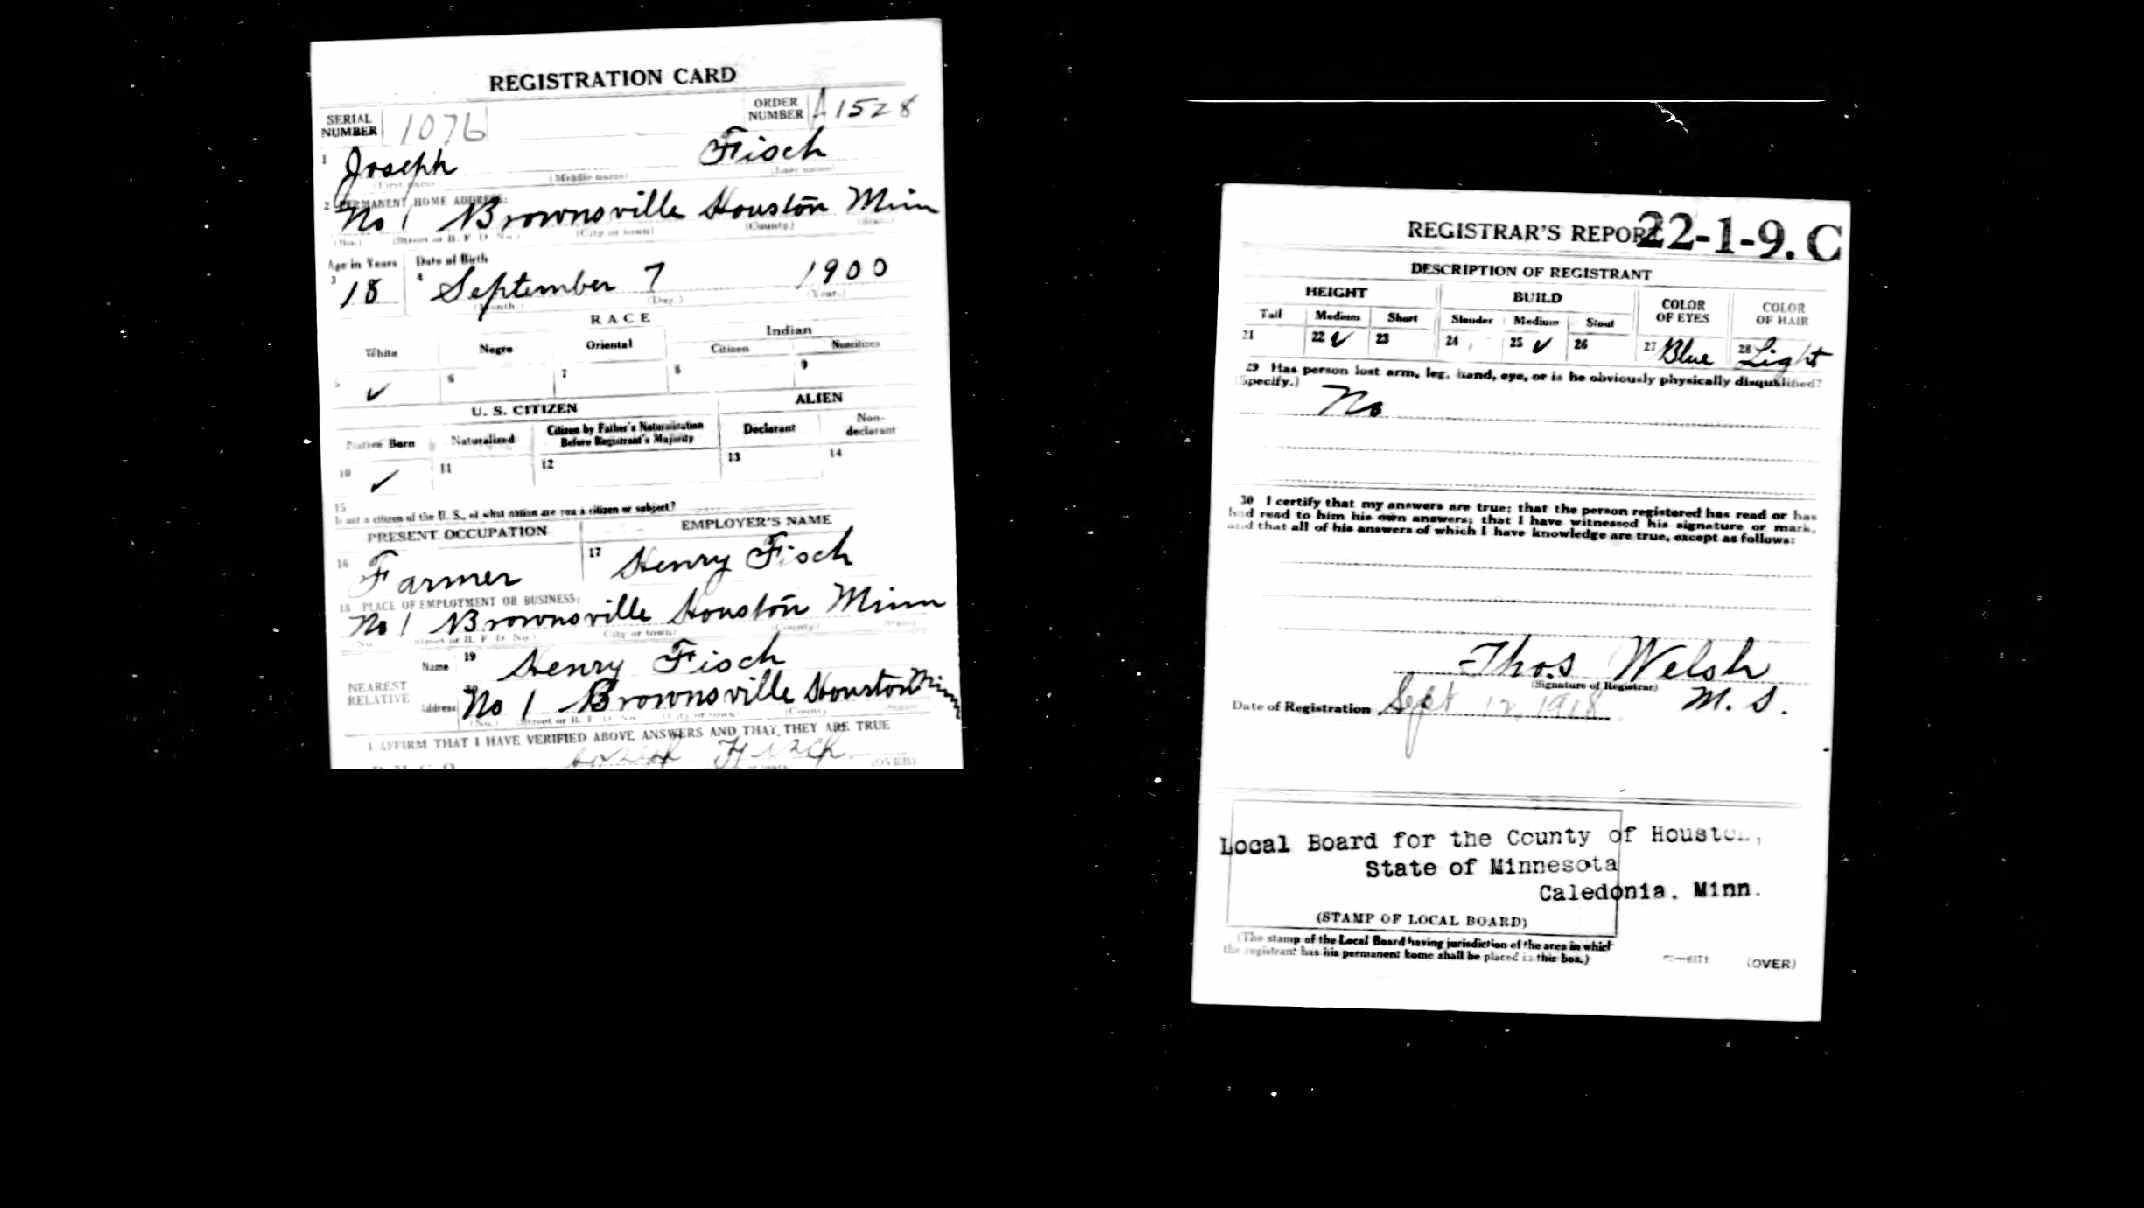 REGISTRATION CARD
SERIAL NUMBER 1076 ORDER NUMBER A1528
1 Joseph Fisch
(First name) (Middle name) (Last name)
2 PERMANENT HOME ADDRESS:
No 1 Brownsville Houston Minn
(No.) (Street or R. F. D. No.) (City or town) (County) (State)
Age in Years Date of Birth
3 18 4 September 7 1900
(Month.) (Day.) (Year.)
RACE
White Negro Oriental Indian
Citizen Noncitizen
5 ✓ 6 7 8 9
U. S. CITIZEN ALIEN
Native Born Naturalized Citizen by Father's Naturalization Before Registrant's Majority Declarant Non-declarant
10 ✓ 11 12 13 14
15
If not a citizen of the U. S., of what nation are you a citizen or subject?
PRESENT OCCUPATION EMPLOYER'S NAME
16 Farmer 17 Henry Fisch
18 PLACE OF EMPLOYMENT OR BUSINESS:
No 1 Brownsville Houston Minn
(No.) (Street or R. F. D. No.) (City or town) (County) (State)
NEAREST RELATIVE Name 19 Henry Fisch
Address 20 No 1 Brownsville Houston Minn
(No.) (Street or R. F. D. No.) (City or town) (County) (State)
I AFFIRM THAT I HAVE VERIFIED ABOVE ANSWERS AND THAT THEY ARE TRUE
(OVER)
REGISTRAR'S REPORT 22-1-9. C
DESCRIPTION OF REGISTRANT
HEIGHT BUILD COLOR OF EYES COLOR OF HAIR
Tall Medium Short Slender Medium Stout
21 22 ✓ 23 24 25 ✓ 26 27 Blue 28 Light
29 Has person lost arm, leg, hand, eye, or is he obviously physically disqualified?
(Specify.) No
30 I certify that my answers are true; that the person registered has read or has
had read to him his own answers; that I have witnessed his signature or mark,
and that all of his answers of which I have knowledge are true, except as follows:
Thos Welsh
(Signature of Registrar) M. S.
Date of Registration Sept 12, 1918
Local Board for the County of Houston,
State of Minnesota
Caledonia, Minn.
(STAMP OF LOCAL BOARD)
(The stamp of the Local Board having jurisdiction of the area in which
the registrant has his permanent home shall be placed in this box.)
(OVER)